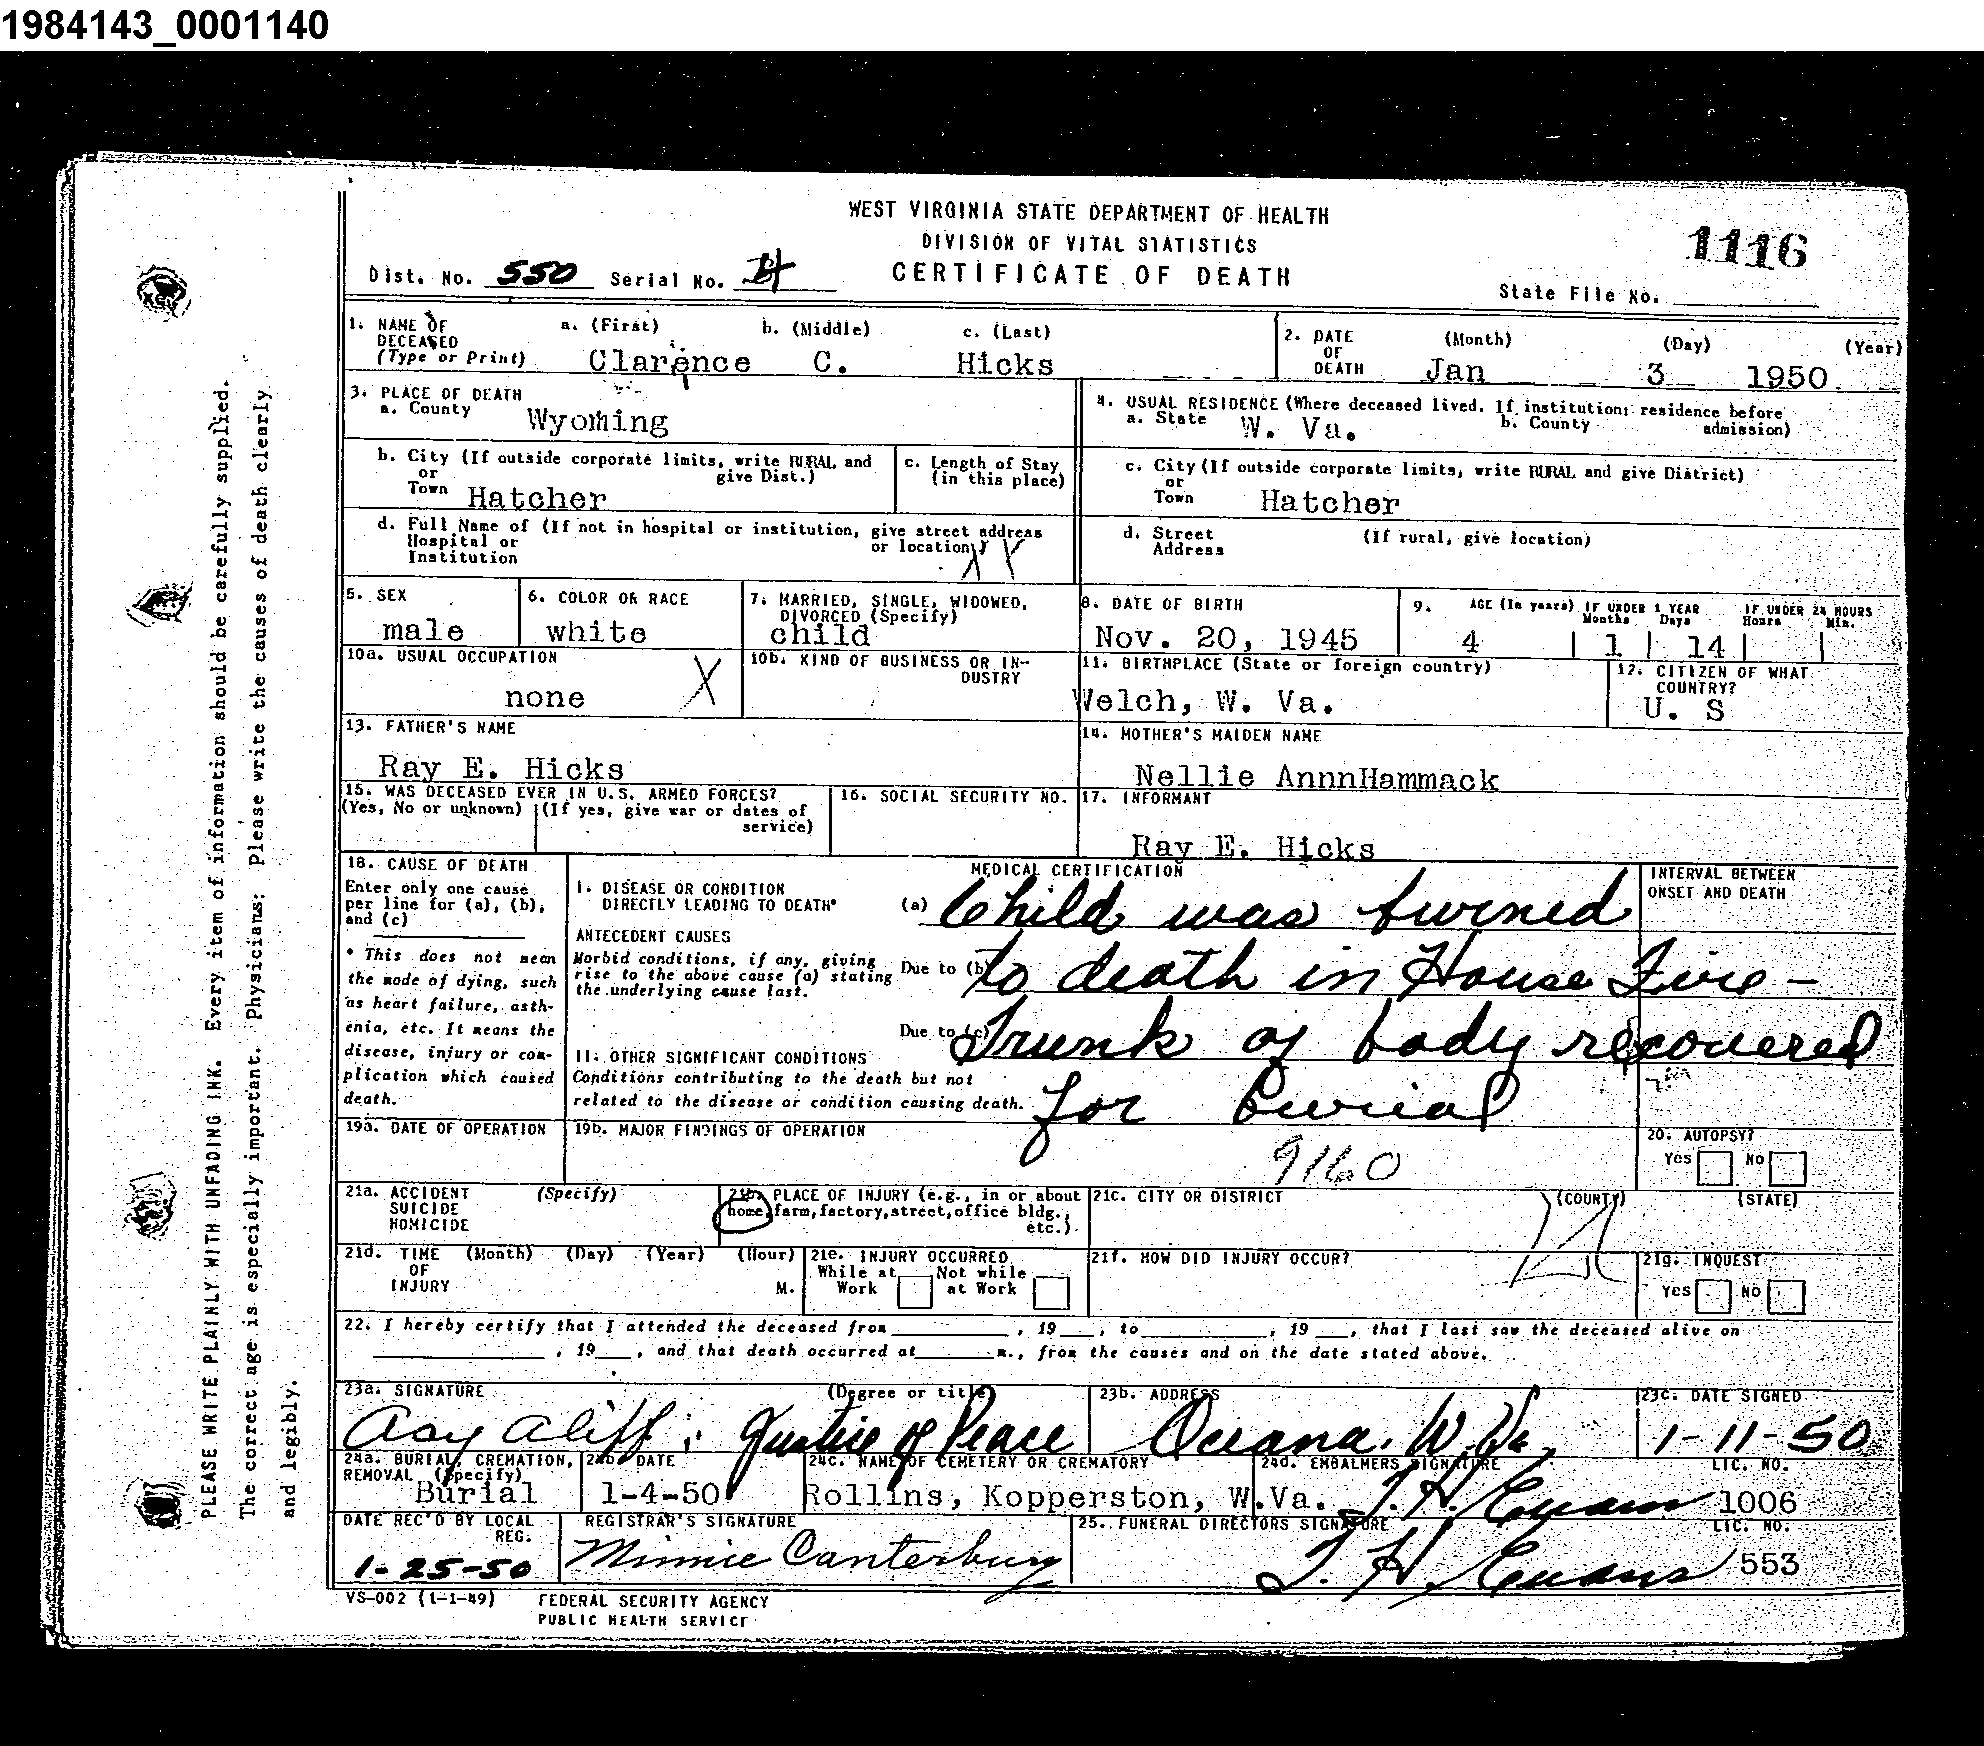 1984143_0001140
WEST VIRGINIA STATE DEPARTMENT OF HEALTH
DIVISION OF VITAL STATISTICS
CERTIFICATE OF DEATH
1116
Dist. No. 550 Serial No.
State File No.
1. NAME OF DECEASED (Type or Print) a. (First) b. (Middle) c. (Last)
Clarence C. Hicks
2. DATE OF DEATH (Month) (Day) (Year)
Jan 3 1950
3. PLACE OF DEATH
a. County Wyoming
4. USUAL RESIDENCE (Where deceased lived. If institution: residence before admission)
a. State W. Va. b. County
b. City (If outside corporate limits, write RURAL and give Dist.)
or Town Hatcher
c. Length of Stay (in this place)
c. City (If outside corporate limits, write RURAL and give District)
or Town Hatcher
d. Full Name of (If not in hospital or institution, give street address or location)
Hospital or Institution
XX
d. Street Address (If rural, give location)
5. SEX
male
6. COLOR OR RACE
white
7. MARRIED, SINGLE, WIDOWED, DIVORCED (Specify)
child
8. DATE OF BIRTH
Nov. 20, 1945
9. AGE (In years) IF UNDER 1 YEAR Months Days IF UNDER 24 HOURS Hours Min.
4 1 14
10a. USUAL OCCUPATION
none X
10b. KIND OF BUSINESS OR INDUSTRY
11. BIRTHPLACE (State or foreign country)
Welch, W. Va.
12. CITIZEN OF WHAT COUNTRY?
U. S
13. FATHER'S NAME
Ray E. Hicks
14. MOTHER'S MAIDEN NAME
Nellie AnnnHammack
15. WAS DECEASED EVER IN U.S. ARMED FORCES?
(Yes, No or unknown) (If yes, give war or dates of service)
16. SOCIAL SECURITY NO.
17. INFORMANT
Ray E. Hicks
18. CAUSE OF DEATH
Enter only one cause per line for (a), (b), and (c)
* This does not mean the mode of dying, such as heart failure, asthenia, etc. It means the disease, injury or complication which caused death.
MEDICAL CERTIFICATION
INTERVAL BETWEEN ONSET AND DEATH
I. DISEASE OR CONDITION DIRECTLY LEADING TO DEATH*
(a) Child was burned
ANTECEDENT CAUSES
Morbid conditions, if any, giving rise to the above cause (a) stating the underlying cause last.
Due to (b) to death in House Fire -
Due to (c) Trunk of body recovered
II. OTHER SIGNIFICANT CONDITIONS
Conditions contributing to the death but not related to the disease or condition causing death.
for burial
19a. DATE OF OPERATION
19b. MAJOR FINDINGS OF OPERATION
9160
20. AUTOPSY?
Yes No
21a. ACCIDENT SUICIDE HOMICIDE (Specify)
21b. PLACE OF INJURY (e.g., in or about home, farm, factory, street, office bldg., etc.)
21c. CITY OR DISTRICT (COUNTY) (STATE)
21d. TIME OF INJURY (Month) (Day) (Year) (Hour) M.
21e. INJURY OCCURRED
While at Work Not while at Work
21f. HOW DID INJURY OCCUR?
21g. INQUEST
Yes No
22. I hereby certify that I attended the deceased from , 19 , to , 19 , that I last saw the deceased alive on
, 19 , and that death occurred at m., from the causes and on the date stated above.
23a. SIGNATURE (Degree or title)
Ray Aliff; Justice of Peace
23b. ADDRESS
Oceana. W. Va.
23c. DATE SIGNED
1-11-50
24a. BURIAL, CREMATION, REMOVAL (Specify)
Burial
24b. DATE
1-4-50
24c. NAME OF CEMETERY OR CREMATORY
Rollins, Kopperston, W.Va.
24d. EMBALMERS SIGNATURE LIC. NO.
T. H. Evans 1006
DATE REC'D BY LOCAL REG.
1-25-50
REGISTRAR'S SIGNATURE
Minnie Canterbury
25. FUNERAL DIRECTORS SIGNATURE LIC. NO.
T. H. Evans 553
VS-002 (1-1-49)
FEDERAL SECURITY AGENCY
PUBLIC HEALTH SERVICE
PLEASE WRITE PLAINLY WITH UNFADING INK. Every item of information should be carefully supplied.
The correct age is especially important. Physicians: Please write the causes of death clearly
and legibly.